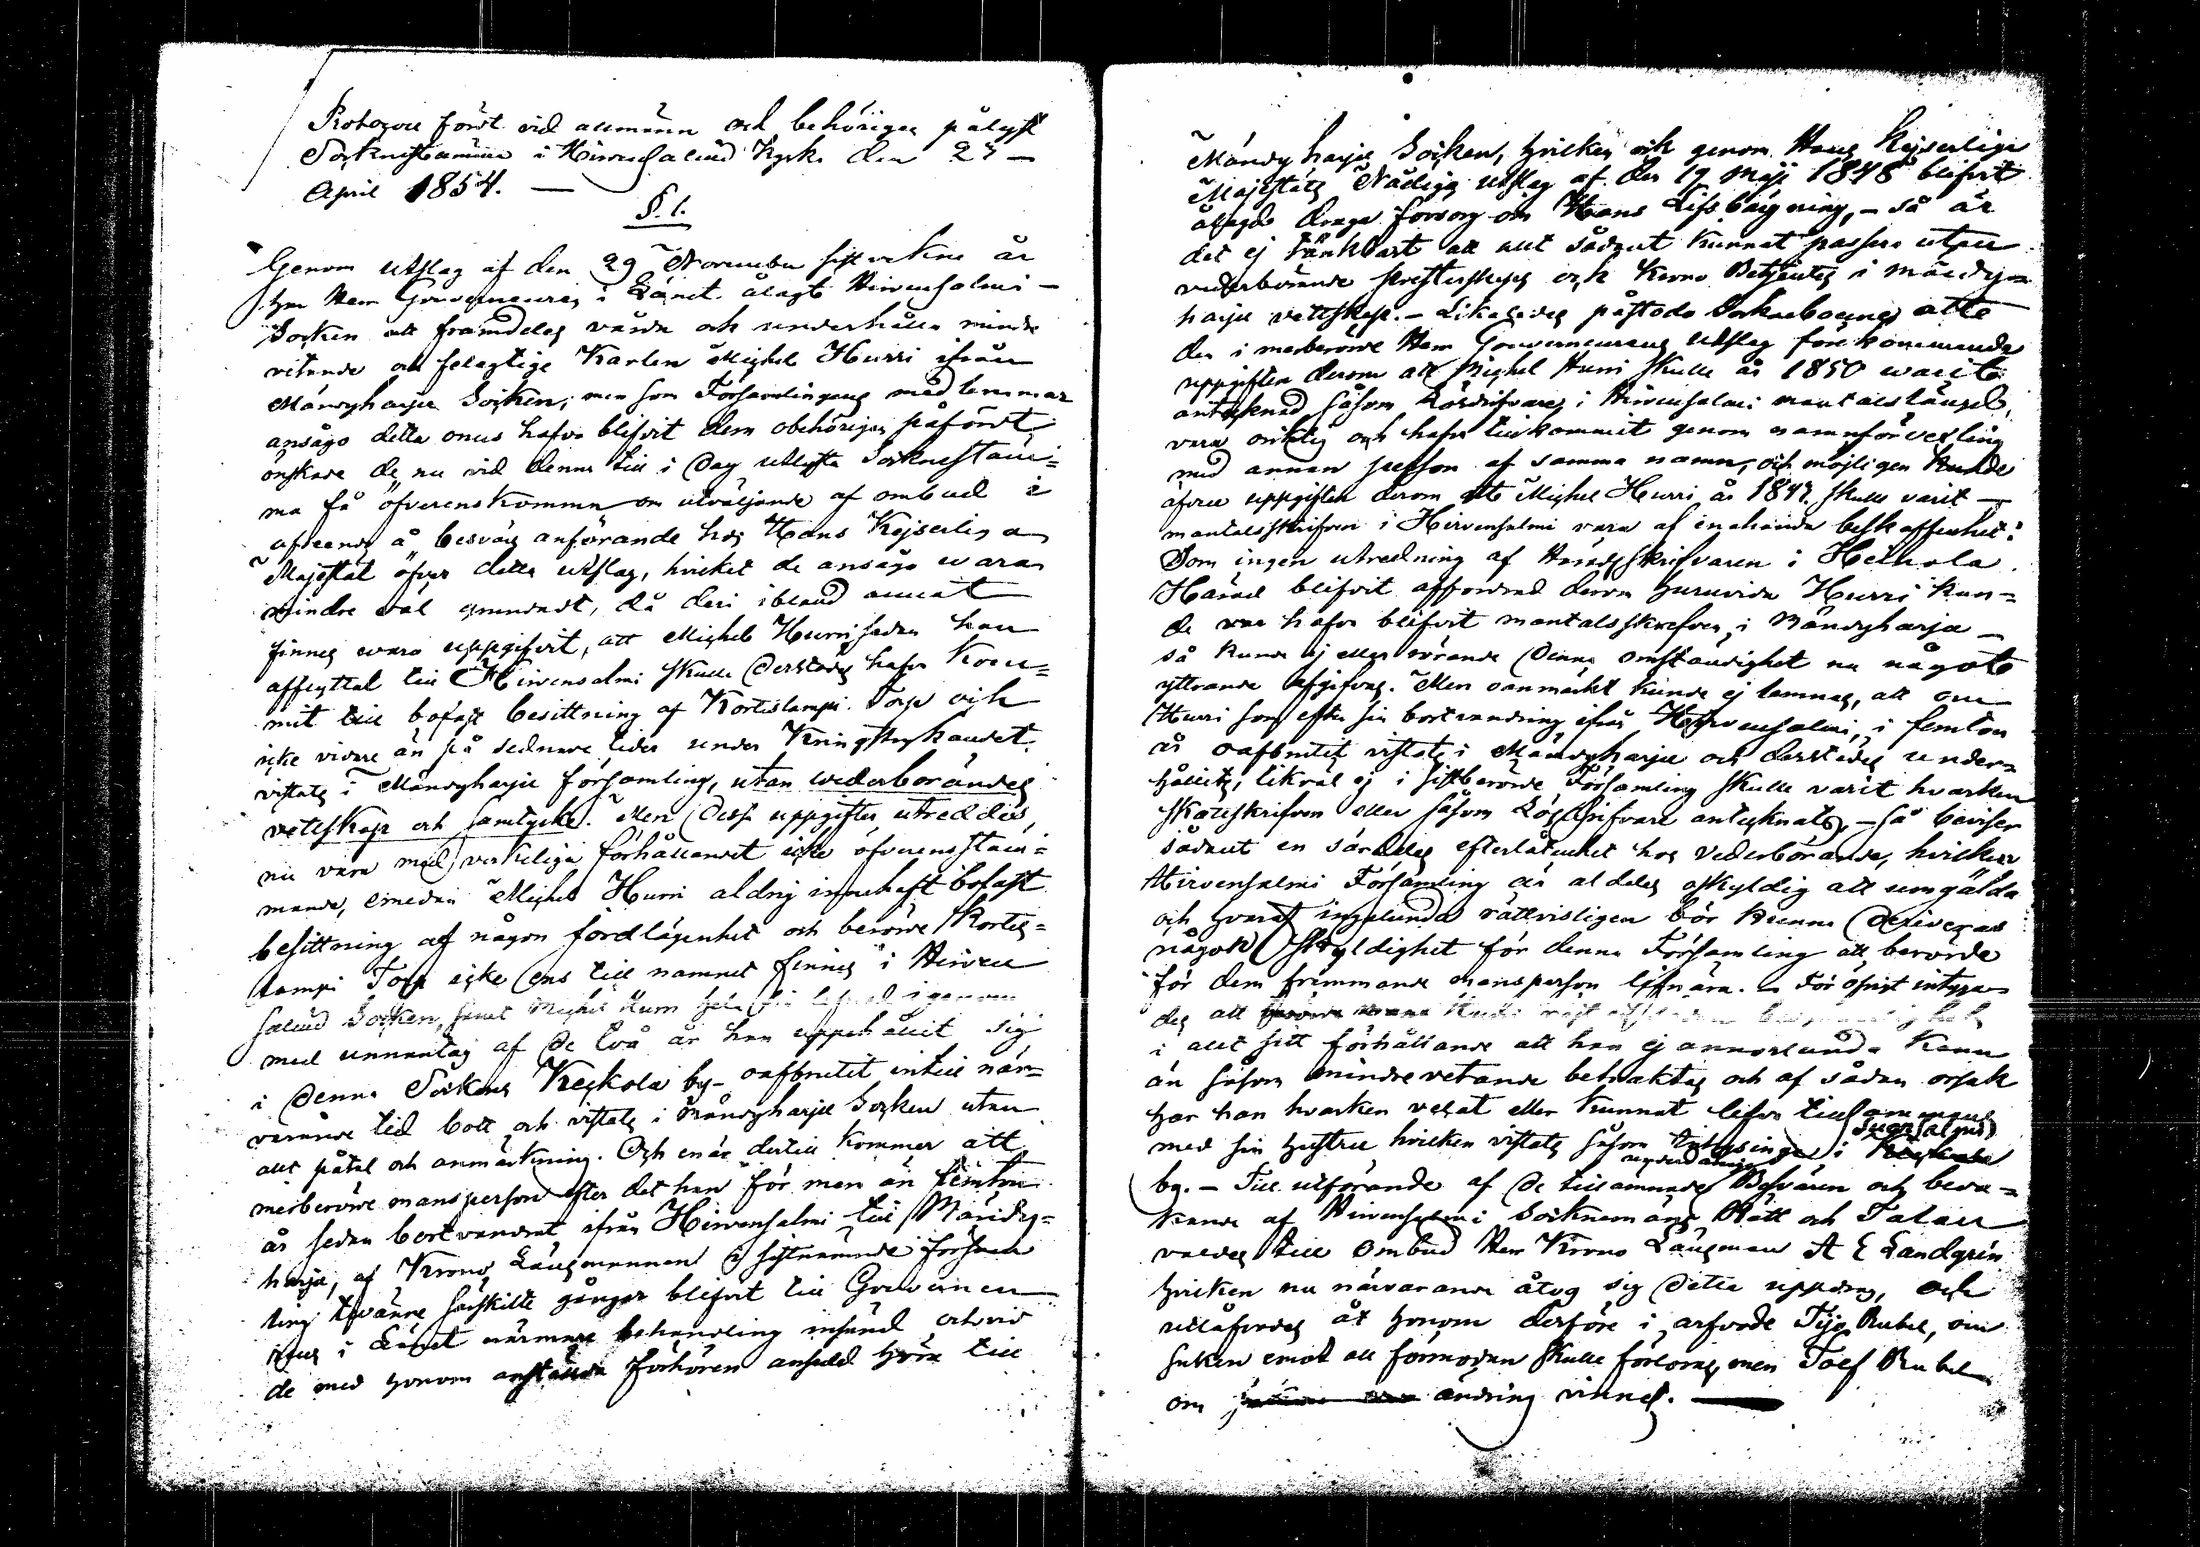 Protocoll fördt vid allmänn och behörigen pålyst
Sockneståmma i Hirvensalmi Kyrka den 23
April 1854. —
§. 1.
Genom Utslag af den 29 November sistvekne år
har Herr Gouverneuren i Länet ålagt Hirvensalmi –
Socken att framdeles vårda och underhålla mindre
vetande och felagtige Karlen Michel Hurri ifrån
Mändyharju Socken; men som Församlingens medlemmar
ansågo detta onus hafva blifvit dem obehörigen påfördt
önskade de nu vid denna till i Dag utlysta Socknestäm=
ma få öfverenskomma om utväljande af ombud i
afseende å besvärs anförande hos Hans Kejserliga
Majestät öfver detta utslag, hvilket de ansågo wara
mindre väl grundadt, då deri ibland annat
finnes vara uppgifvit, att Michel Hurri sedan han
afflyttat till Hirvensalmi skulle derstädes hafva kom=
mit till bofast besittning af Kortislampi Torp och
icke vidare än på sednare tider under Kringstrykandet
vistats i Mändyharju församling, utan wederbörandes
vettskap och samtycke. Men Dessa uppgifter utreddes
nu vara med verkeliga förhållandet icke öfverensstäm=
mande, emedan Michel Hurri aldrig innehaft bofast
besittning af någon jordlägenhet och berörde Kortis=
lampi Torp icke ens till namnet finnes i Hirven
salmi Socken, samt Michel Hurri hela sin lefnad igenom
med unnantag af De två år han uppehållit sig
i Denna Sockens Keskola by – oafbrutit intill när=
varande tid bott och vistats i Mändyharju Socken utan
allt påtal och anmärkning. Och enär dertill kommer att
merberörde mansperson efter det han för mer än femton
år sedan bortvandrat ifrån Hirvensalmi till Mändy=
harju, af Krono Länsmannen i sistnämnde försam
ling tvänne särskilte gånger blifvit till Gouverneu
rens i Länet närmare behandling insänd och vid
de med honom anstälda förhören ansedd höra till
Mändyharju Socken, hvilken och genom Hans Kejserliga
Majestäts Nådiga Utslag af den 19 Maji 1848 blifvit
ålagde draga försorg om Hans Lifsbärgning, – så är
det ej tänkbart att allt sådant kunnat passera utan
vederbörande Presterskaps och Krono Betjentes i Mändy=
harju vettskap. – Likaledes påstodo Sockneboerne att
den i merberörde Herr Gouverneurens Utslag förekommande
uppgiften derom att Michel Hurri skulle år 1850 warit
antecknad såsom Lösdrifvare i Hirvensalmi mantalslängd,
vara oriktig och hafva tillkommit genom namnförvexling
med annan person af samma namn, och möjligen kunde
äfven uppgiften derom att Michel Hurri år 1847 skulle varit –
mantalsskrifven i Hirvensalmi vara af enahanda beskaffenhet.
Som ingen utredning af Häradsskrifvaren i Heinola
Härad blifvit affordrad derom huruvida Hurri kun=
de war hafva blifvit mantalsskrefven i Mändyharju –
så kunde ej eller rörande Denna omständighet nu något
yttrande afgifvas. Men oanmärkt kunde ej lemnas, att om
Hurri som efter sin bortvandring ifrån Hirvensalmi, i femton
år oafbrutit vistats i Mändyharju och derstädes under=
hållits, likväl ej i sistberörde Församling skulle varit hvarken
skattskrifven eller såsom Lösdrifvare antecknats, – så bevisar
sådant en särdeles efterlåtenhet hos Vederbörande, hvilken
Hirvensalmi Församling är aldeles oskyldig att umgälda
och hvaraf ingalunda rättvisligen bör kunna Deriveras
någon Skyldighet för denna Församling att berörde
för dem främmande mansperson lifnära. – För öfrigt intyga
des att
i allt sitt förhållande att han ej annorlunda kan
än såsom mindre vetande betraktas och af sådan orsak
har han hvarken velat eller kunnat lefva tillsammans
med sin hustru hvilken vistats såsom inhysinge i Suonsalmi
by. – Till utförande af De tillämnade underdåniga Besvären och beva=
kande af Hirvensalmi Socknemäns Rätt och Talan
valdes till Ombud Herr Krono Länsman A E Landgrén
hvilken nu närvarande åtog sig Detta uppdrag, och
utlåfvades åt honom derföre i arfvode Tjugo Rubel, om
saken emot all förmodan skulle förloras, men Tolf Rubel
om ändring vinnes. —